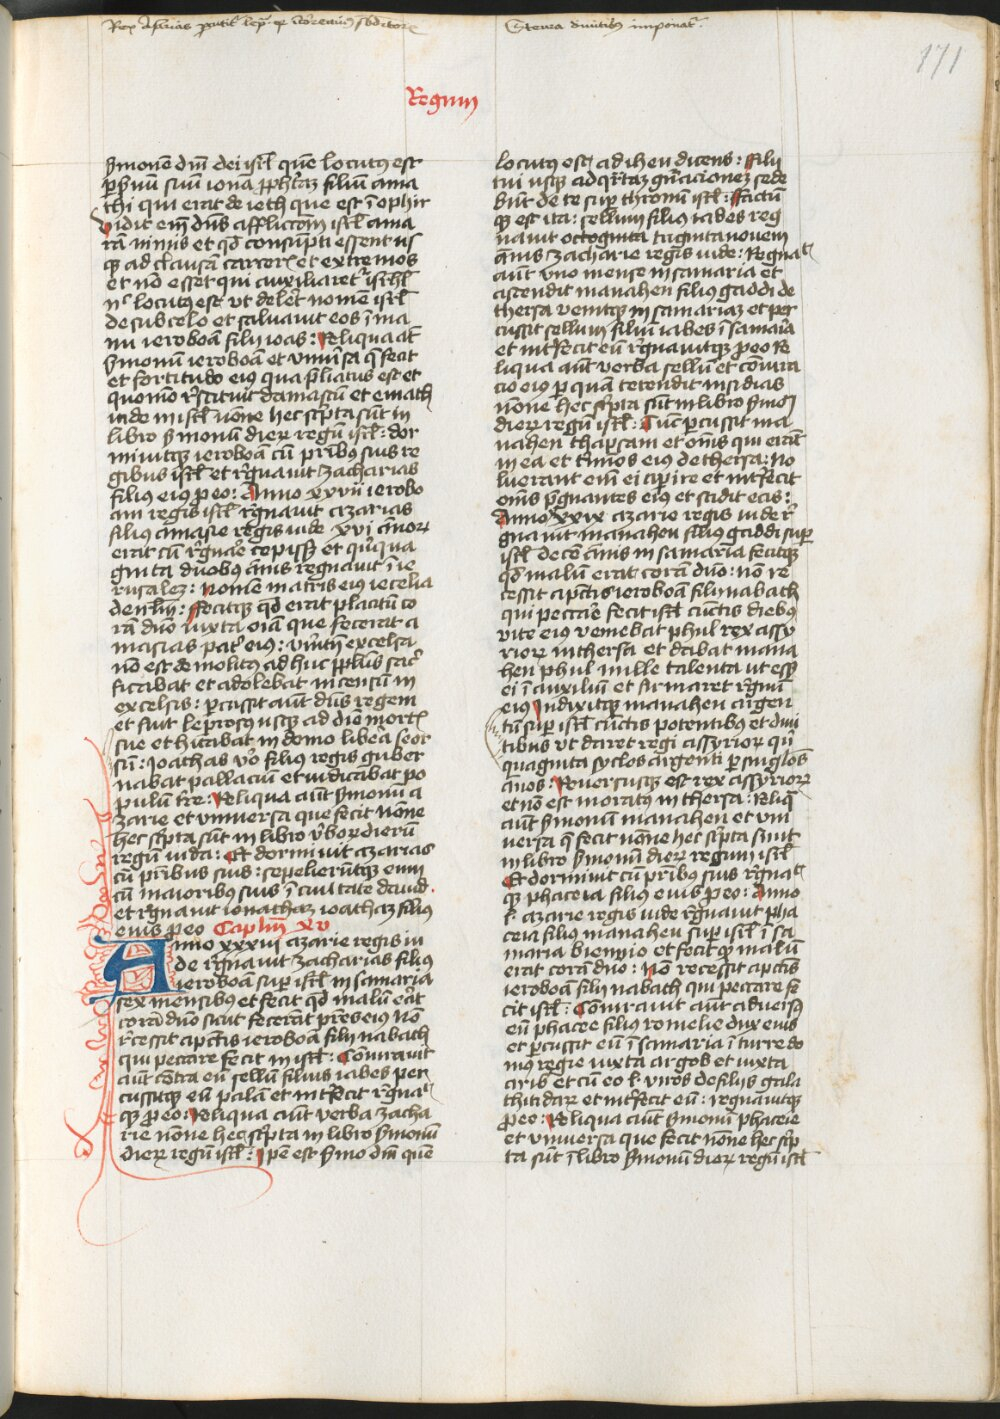 Rex Asarias
Steura divitibus imponat᷑
171
Regum
s̃monē dñi dei isrl̃ quē locutꝰ est
ꝑ s̃vū suū ionā ꝓph̃taʒ filiū ama
thi qui erat de ieth que est ī ophir
vidit em̃ dñs afflicc̃om isrl̃ ama
rā nimis et qd̃ consūpti essent usꝫ
qꝫ ad clausū carcer᷑ et extremos
et nō esset qui auxiliaret᷑ isrl̃
n͛ locutꝰ est vt deler͛t nomē isrl̃
de sub celo et saluauit eos ī ma
nu ieroboā filii ioas : Reliqua aūt
s̃monum ieroboā et vniũsa q̃ fecit
et fortitudo eiꝰ qua p̃liatus est et
quomō r͛stituit damascū et emath
iude in isrl̃ nōne hec sc͛pta sūt in
libro s̃monū dieꝝ regū isrl̃ : dor
miuitqꝫ ieroboā cū pr͛ibus suis re
gibus isrl̃ et r͛gnauit zacharias
filius eiꝰ ꝓ eo : Anno xxvii ierobo
am regis isrl̃ r͛gnauit azarias
filius amasie regis iude xvi ānoꝝ
erat cū r͛gnar͛e cepissꝫ et qui̇qua
ginta duobꝰ ānis regnauit ī ie
rusaleʒ : nomen matris eiꝰ iecelia
de ir͛lm̃ : ffecitqꝫ qd̃ erat placitū co
rā dño iuxta oīa que fecerat a
masias pat͛ eiꝰ : vm̃tn̄ excelsa
nō est demolitꝰ ad huc ppl̃us sac͛
ficabat et adolebat incensum in
excelsis : ꝑcussit aūt dñs regem
et fuit leprosꝰ usqꝫ ad diē mort᷑
sue et hītabat in domo libera seor
sū : ioathas v͛o filius regis guber
nabat pallaciū et iudicabat po
pulum t͛re : Reliqua aūt s̃monū a
zarie et vniuersa que fecit nōne
hec sc͛pta sūt in libro v͛boꝝ dierū
regū iuda : Et dormiuit azarias
cū pr͛ibus suis : sepelierūtqꝫ eum
cū maioribꝰ suis ī ciuitate dauid .
et r͛gnauit ionathaʒ ioathaʒ filiꝰ
eius ꝓ eo Caplm̃ xv
Anno xxxvii azarie regis iu
de r͛gnauit zacharias filiꝰ
ieroboā sup͛ isrl̃ in samaria
sex mensibꝰ et fecit qd̃ malū erat
corā dño sicut fecerāt pr͛es eiꝰ nō
r͛cessit a pc̃tis ieroboā filij nabath
qui peccare fecit in isrl̃ : Coniurauit
aūt cōtra eū sellū filius iabes per
cussitqꝫ eū palā et int͛fecit r͛gna
qꝫ ꝓ eo : Reliqua aūt verba zacha
rie nōne hec sc͛pta in libro s̃monū
dieꝝ regū isrl̃ : ip̄e est s̃mo dñi quē
locutꝰ est ad iheu dicens : ffilij
tui usqꝫ ad qr͛taʒ gn̄acioneʒ sede
būt de te sup͛ thronū isrl̃ : ffactū
qꝫ est ita : sellum filiꝰ iabes reg
nauit octoginta triginta nouem
anis zacharie regis iude : Regnat
aūt vno mense in samaria et
ascendit manahen filiꝰ gaddi de
thersa venitqꝫ in samariaʒ et per
cussit sellum filiū iabes ī samaria
et int͛fecit eū r͛gnauitqꝫ ꝓ eo Re
liqua aūt verba sellū et cōiura
cio eiꝰ ꝑ quā tetendit insidias
nōne hec sc͛pta sūt in libro s̃monū
dieꝝ regū isrl̃ : Tūc ꝑcussit ma
nahen thapsam et omīs qui erāt
in ea et t͛minos eiꝰ de thersa : no
luerant em̃ ei aꝑire et int͛fecit
omīs p͛gnantes eiꝰ et scidit eas :
Anno xxix azarie regis iude r͛
gnauit manahen filius gaddi sup͛
isrl̃ decē ānis in samaria fecitqꝫ
qd̃ malū erat corā dño : nō re
cessit a pc̃tis ieroboā filij nabath
qui peccare fecit isrl̃ cūctis diebꝰ
vite eiꝰ veniebat phul rex assy
rioꝝ in thersa et dabat mana
hen phul mille talenta ut essꝫ
ei ī auxiliū et firmaret r͛gnū
eiꝰ Indixitqꝫ manahen argen
tū sup͛ isrl̃ cūctis potentibꝰ et diui
tibus vt daret regi assyrioꝝ qui̇
quaginta syclos argenti ꝑ singlos
ānos : Reuersusqꝫ est rex assyrioꝝ
et nō est moratꝰ in thersa : Reliq̃
aūt s̃monum manahen et vni
uersa q̃ fecit nōne hec sc͛pta sunt
in libro s̃monū dieꝝ regum isrl̃
Et dormiuit cū pr͛ibus suis r͛gnat
qꝫ phaceia filius eius ꝓ eo : Anno
l. azarie regis iude r͛gnauit pha
ceia filiꝰ manahen sup͛ isrl̃ ī sa
maria biennio et fecit qd̃ malū
erat corā dño : Nō recessit a pc̃tis
ieroboā filij nabath qui peccare fe
cit isrl̃ : Coniurauit aūt aduersꝰ
eū phacee filius romelie dux eius
et ꝑcussit eū ī samaria ī turre do
mꝰ regie iuxta argob et iuxta
aris et cū eo l. viros de filijs gala
thitidaꝝ et int͛fecit eū : regnauitqꝫ
ꝓ eo : Reliqua aūt s̃monū phaceie
et vniuersa que fecit nōne hec sc͛p
ta sūt ī libro s̃monū dieꝝ regū isrl̃